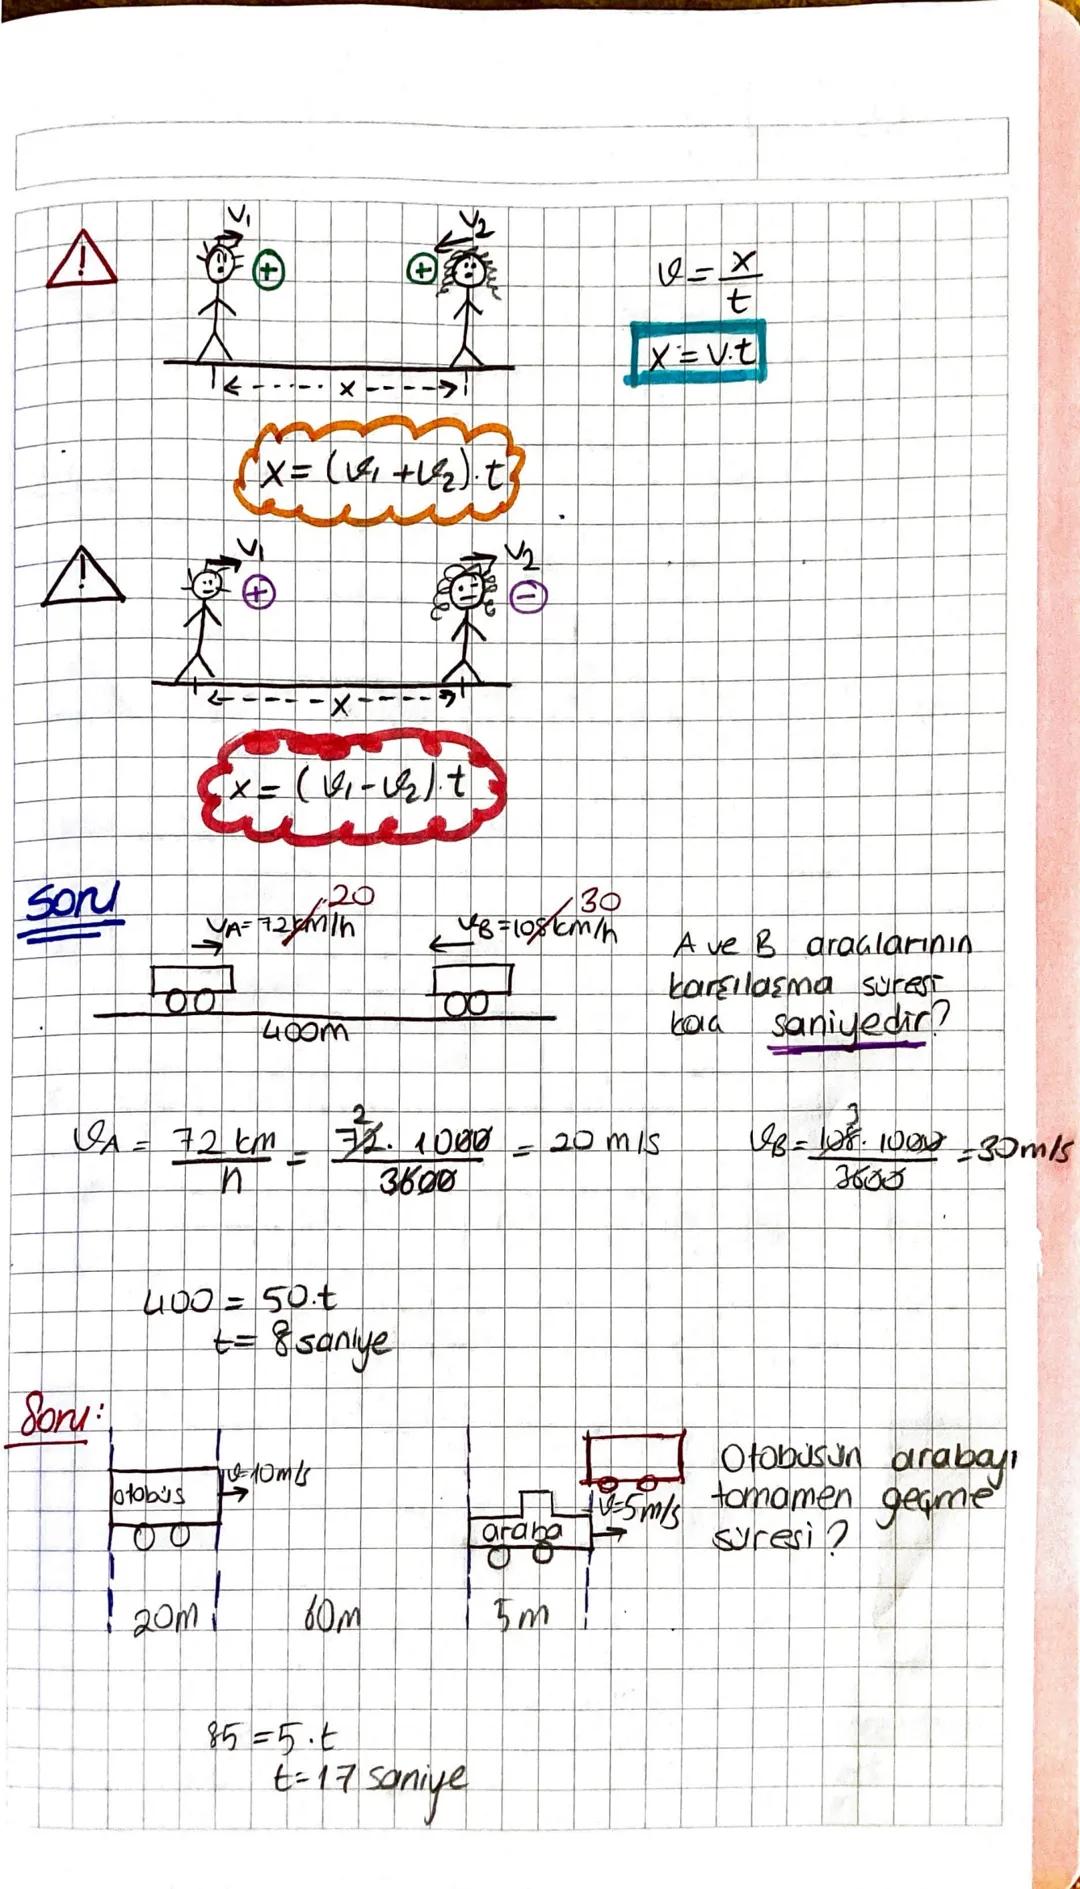 !
V₁
V₂
+
+
𝑣 = x/t
x = v.t
x
x = (𝑣₁ + 𝑣₂).t
!
V₁
V₂
+
−
x
x = (𝑣₁ − 𝑣₂).t
Soru
20
30
VA = 72 km/h
𝑣B = 108 km/h
400m
A ve B araçlarının
karşılaşma süresi
kaç saniyedir?
𝑣A = 72 km/h = 72. 1000/3600 = 20 m/s
2
𝑣B = 108. 1000/3600 = 30 m/s
3
400 = 50.t
t = 8 saniye
Soru:
otobüs
𝑣=10m/s
araba
V=5m/s
20m
60m
5m
Otobüsün arabayı
tamamen geçme
süresi?
85 = 5.t
t = 17 saniye